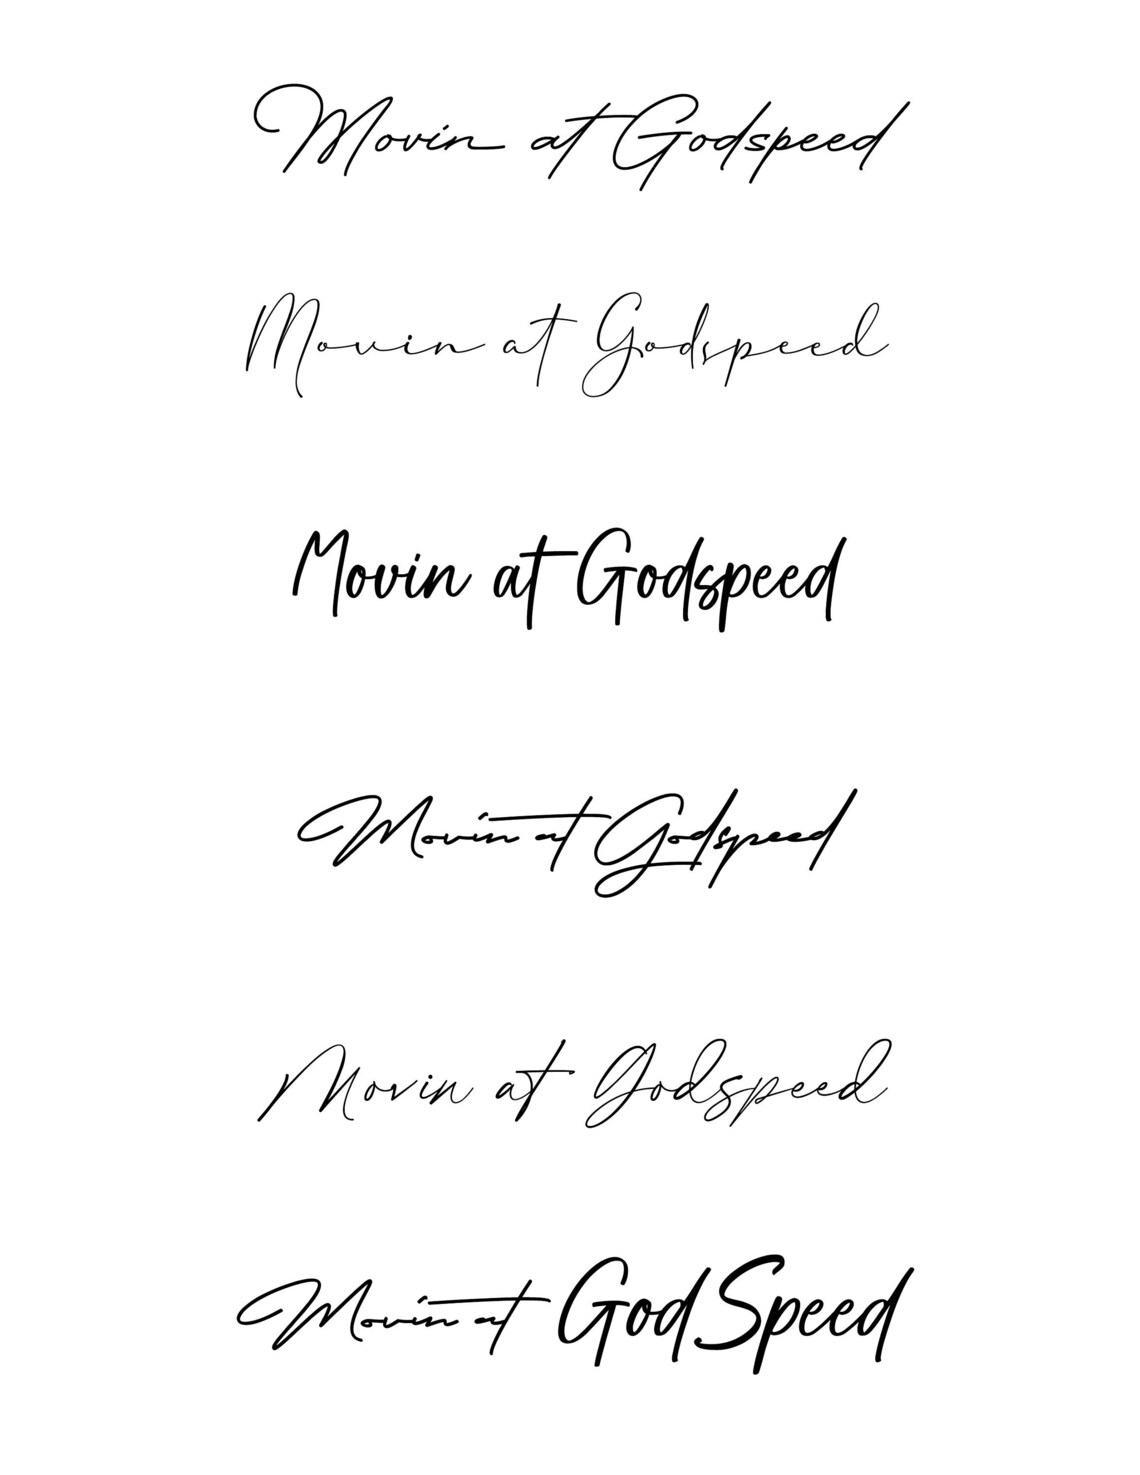 Movin at Godspeed
Movin at Godspeed
Movin at Godspeed
Movin at Godspeed
Movin at Godspeed
Movin at GodSpeed